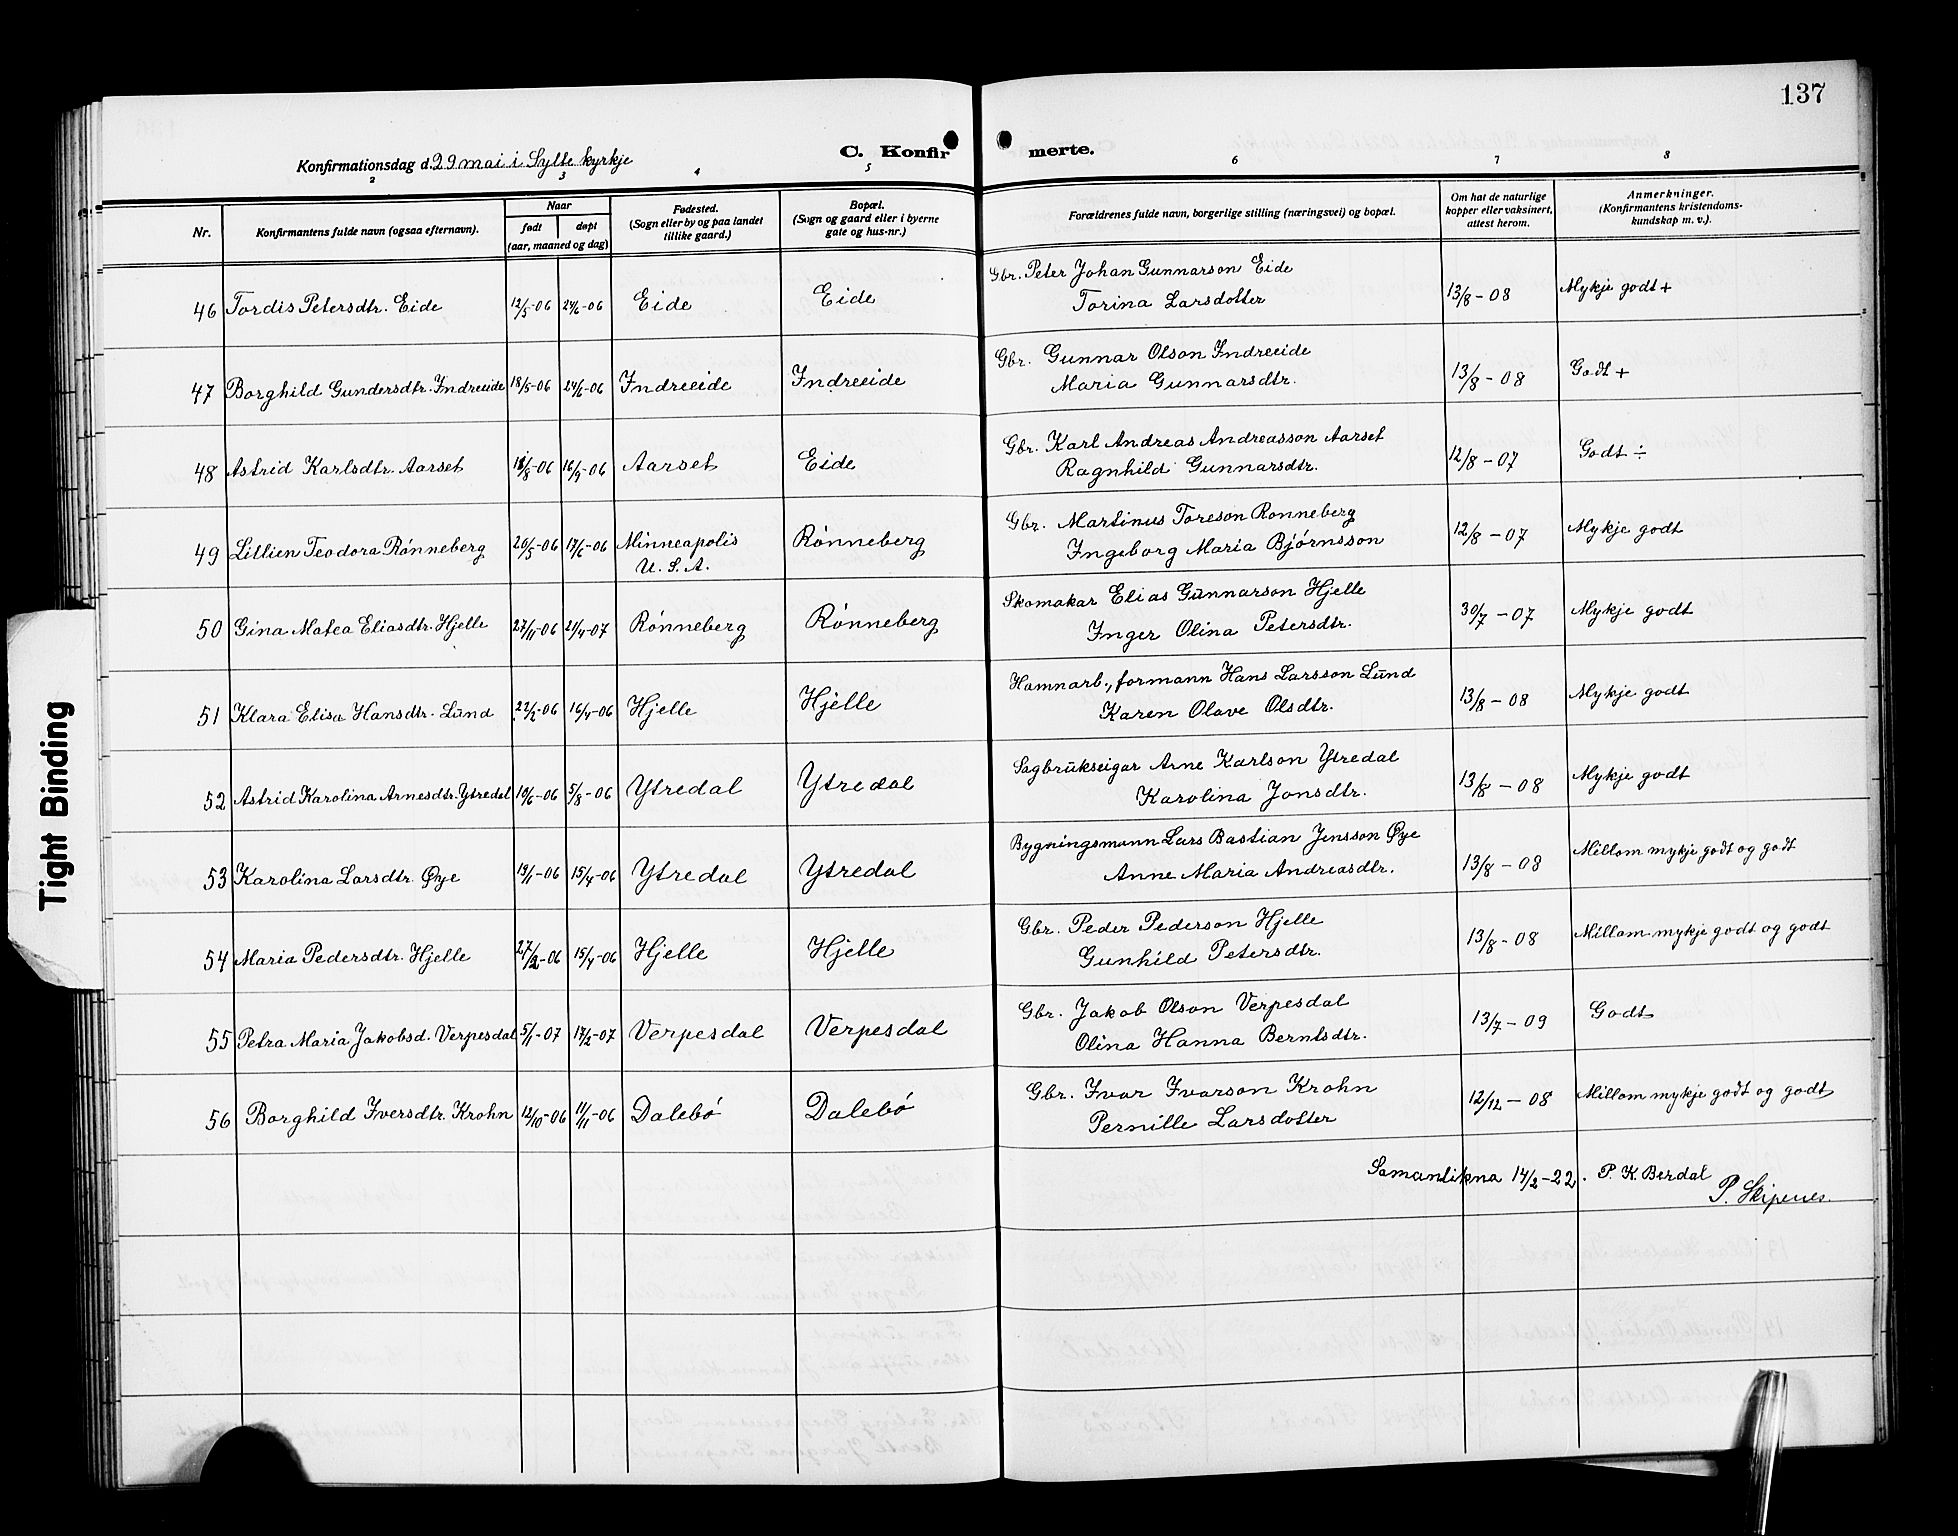 137
C. Konfirmerte.
Konfirmationsdag d. 29 mai i Sylte kyrkje
2 3 4 5 6 7 8
Nr.
Konfirmantens fulde navn (ogsaa efternavn).
Naar
født døpt
(aar, maaned og dag)
Fødested.
(Sogn eller by og paa landet
tillike gaard.)
Bopæl.
(Sogn og gaard eller i byerne
gate og hus-nr.)
Forældrenes fulde navn, borgerlige stilling (næringsvei) og bopæl.
Om hat de naturlige
kopper eller vaksinert,
attest herom.
Anmerkninger.
(Konfirmantens kristendoms-
kundskap m. v.).
Gbr. Peter Johan Gunnarson Eide
46 Tordis Petersdtr. Eide 12/5-06 24/6-06 Eide Eide Torina Larsdotter 13/8-08 Mykje godt +
Gbr. Gunnar Olson Indreeide
47 Borghild Gundersdtr. Indreeide 18/5-06 24/6-06 Indreeide Indreeide Maria Gunnarsdtr. 13/8-08 Godt +
Gbr. Karl Andreas Andreasson Aarset
48 Astrid Karlsdtr. Aarset /8-06 16/9-06 Aarset Eide Ragnhild Gunnarsdtr. 12/8-07 Godt ÷
Gbr. Martinus Toreson Rønneberg
49 Lillien Teodora Rønneberg 20/5-06 17/6-06 Minneapolis Rønneberg Ingeborg Maria Bjørnsson 12/8-07 Mykje godt
U. S. A.
Skomakar Elias Gunnarson Hjelle
50 Gina Matea Eliasdtr. Hjelle 27/11-06 21/4-07 Rønneberg Rønneberg Inger Olina Petersdtr. 30/7-07 Mykje godt
Hamnarb., formann Hans Larsson Lund
51 Klara Elisa Hansdtr. Lund 22/2-06 16/4-06 Hjelle Hjelle Karen Olave Olsdtr. 13/8-08 Mykje godt
Sagbrukseigar Arne Karlson Ytredal
52 Astrid Karolina Arnesdtr. Ytredal 10/6-06 5/8-06 Ytredal Ytredal Karolina Jonsdtr. 13/8-08 Mykje godt
Bygningsmann Lars Bastian Jensson Øye
53 Karolina Larsdtr. Øye 19/1-06 15/4-06 Ytredal Ytredal Anne Maria Andreasdtr. 13/8-08 Millom mykje godt og godt
Gbr. Peder Pederson Hjelle
54 Maria Pedersdtr. Hjelle 27/2-06 15/4-06 Hjelle Hjelle Gunhild Petersdtr. 13/8-08 Millom mykje godt og godt
Gbr. Jakob Olson Verpesdal
55 Petra Maria Jakobsd. Verpesdal 5/1-07 17/2-07 Verpesdal Verpesdal Olina Hanna Berntsdtr. 13/7-09 Godt
Gbr. Ivar Ivarson Krohn
56 Borghild Iversdtr. Krohn 12/10-06 11/11-06 Dalebø Dalebø Pernille Larsdotter 12/12-08 Millom mykje godt og godt
Samanlikna 14/2-22. P. K. Berdal
P. Skipenes.
Tight Binding